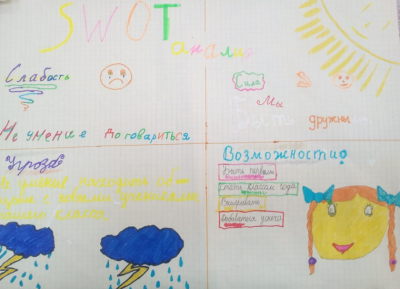 SWOT
анализ
Слабость
Не умение договариться
Сила
Мы
дружны
Угроза
не умение находить общ
с новыми учениками
нашего класса
Возможности
Быть первым
Стать классом года
Выигрывать
Добиваться успеха